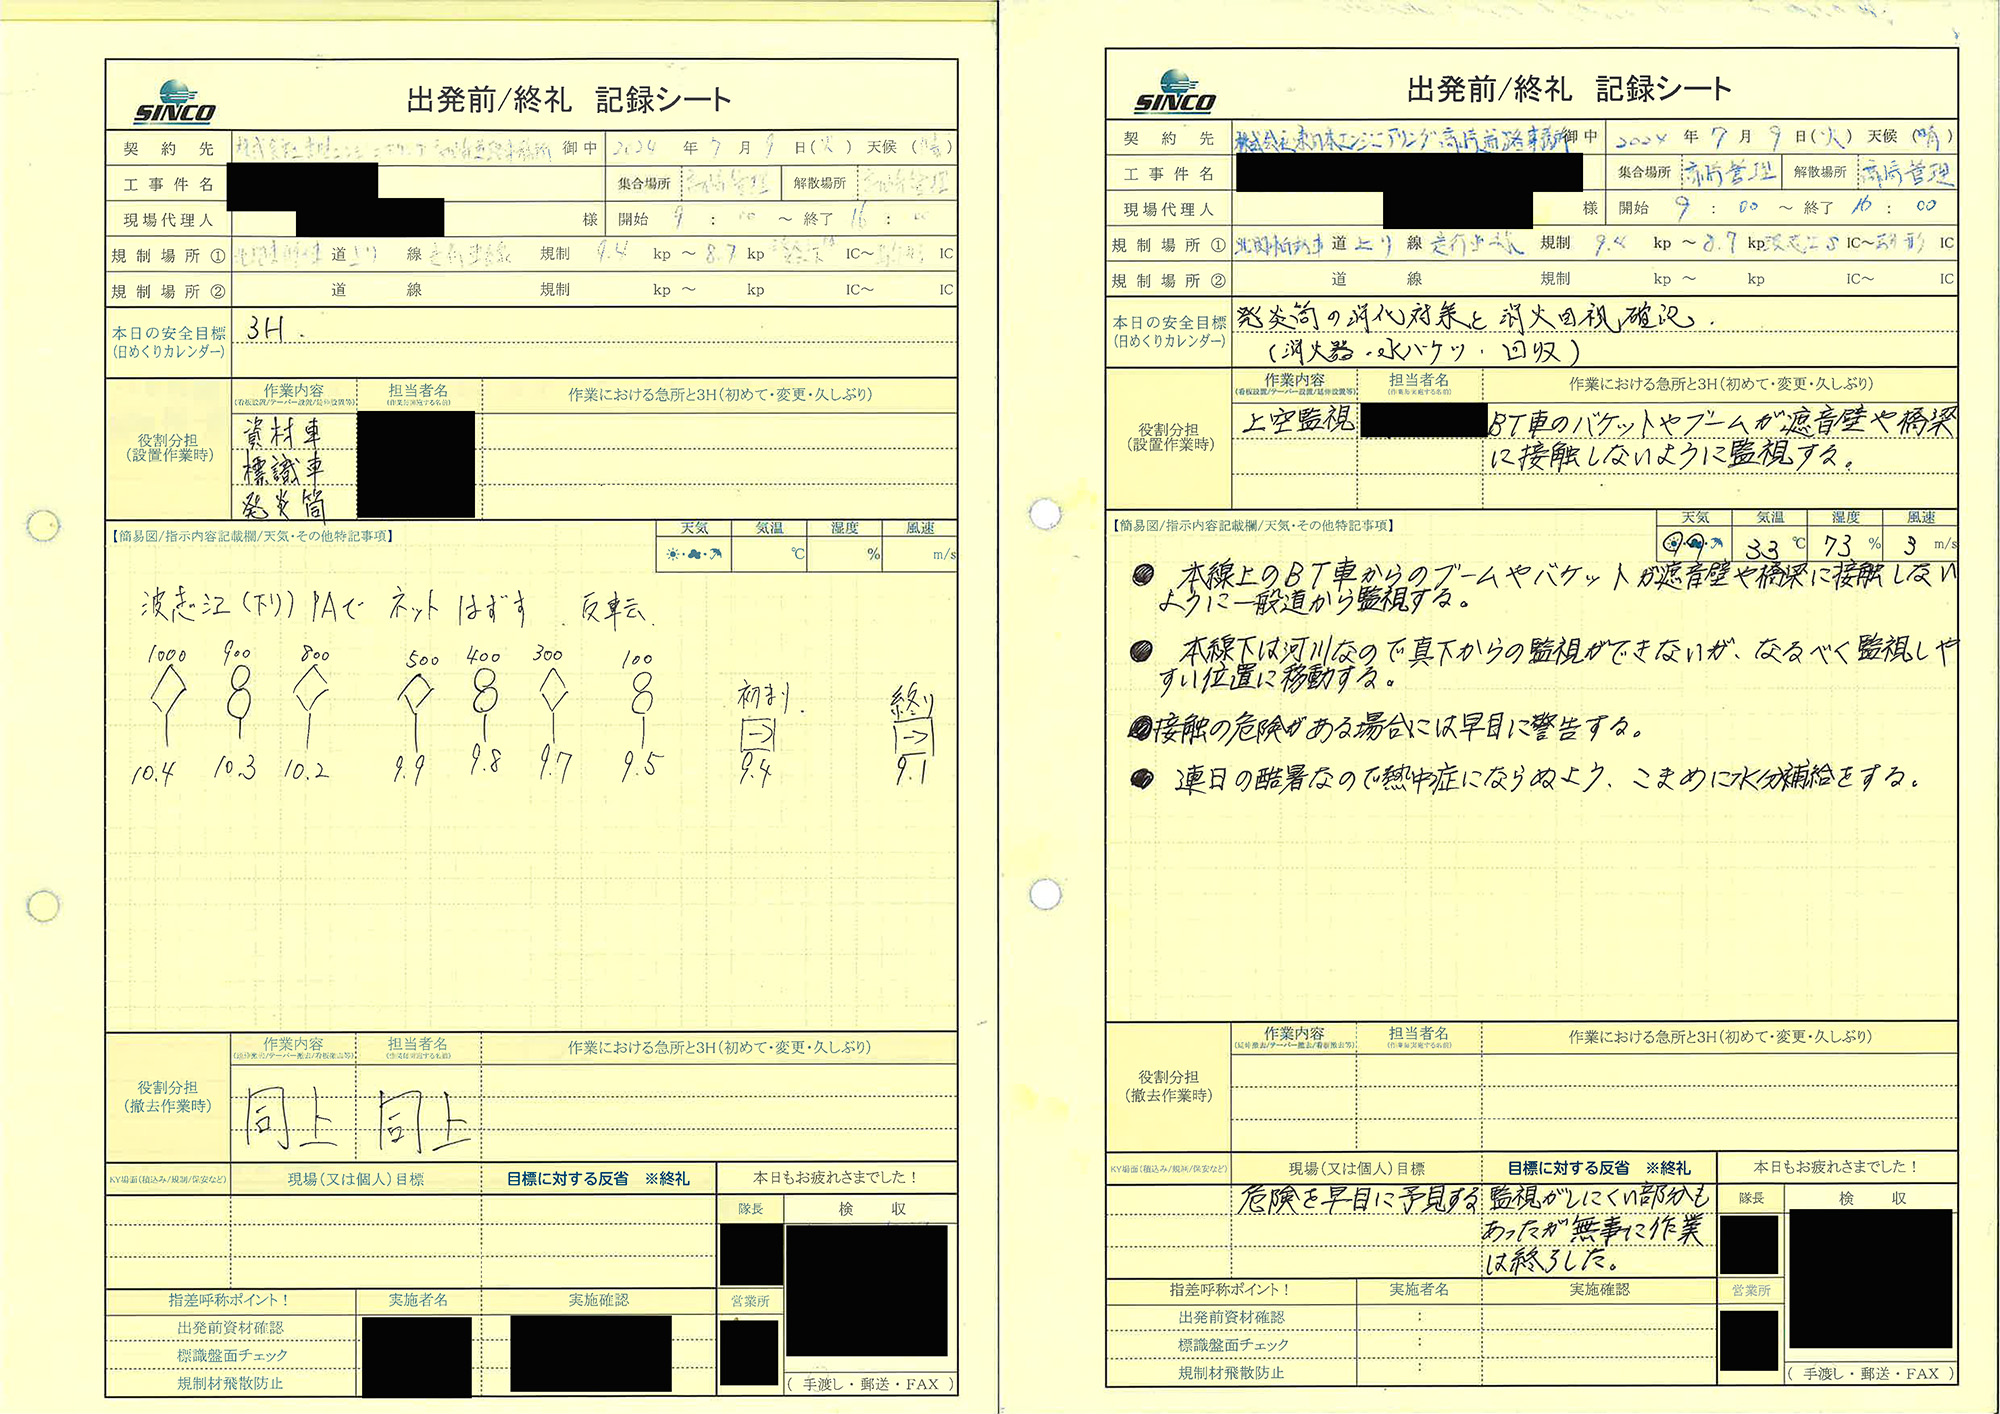 SINCO
出発前/終礼　記録シート
契約先 御中 2024 年 7 月 9 日(火) 天候(晴)
工事件名 集合場所 高崎管理 解散場所 高崎管理
現場代理人 様 開始 9 : 00 ～ 終了 16 : 00
規制場所① 道 上り 線 規制 9.4 kp ～ 8.7 kp IC～ IC
規制場所② 道 線 規制 kp ～ kp IC～ IC
本日の安全目標
(日めくりカレンダー)
3H.
役割分担
(設置作業時)
作業内容
(看板設置/テーパー設置/延伸設置等)
担当者名
(作業毎実施する名前)
作業における急所と3H(初めて・変更・久しぶり)
資材車
標識車
発炎筒
【簡易図/指示内容記載欄/天気・その他特記事項】
天気 気温 湿度 風速
℃ % m/s
波志江(下り)PAで ネット はずす . 反転.
1000 900 800 500 400 300 100
初まり 終り
→ →
10.4 10.3 10.2 9.9 9.8 9.7 9.5 9.4 9.1
役割分担
(撤去作業時)
作業内容
担当者名
(作業毎実施する名前)
作業における急所と3H(初めて・変更・久しぶり)
同上 同上
KY場面(積込み/規制/保安など) 現場(又は個人)目標 目標に対する反省　※終礼 本日もお疲れさまでした！
隊長 検　収
指差呼称ポイント！ 実施者名 実施確認 営業所
出発前資材確認
標識盤面チェック
規制材飛散防止
(手渡し・郵送・FAX)
SINCO
出発前/終礼　記録シート
契約先 株式会社東日本エンジニアリング高崎道路事務所 御中 2024 年 7 月 9 日(火) 天候(晴)
工事件名 集合場所 高崎管理 解散場所 高崎管理
現場代理人 様 開始 9 : 00 ～ 終了 16 : 00
規制場所① 北関東自動車 道 上り 線 走行車線 規制 9.4 kp ～ 8.7 kp 波志江S IC～ IC
規制場所② 道 線 規制 kp ～ kp IC～ IC
本日の安全目標
(日めくりカレンダー)
発炎筒の消化対策と消火目視確認.
(消火器・水バケツ・回収)
役割分担
(設置作業時)
作業内容
(看板設置/テーパー設置/延伸設置等)
担当者名
(作業毎実施する名前)
作業における急所と3H(初めて・変更・久しぶり)
上空監視 BT車のバケットやブームが遮音壁や橋梁
に接触しないように監視する。
【簡易図/指示内容記載欄/天気・その他特記事項】
天気 気温 湿度 風速
33 ℃ 73 % 3 m/s
● 本線上のBT車からのブームやバケットが遮音壁や橋梁に接触しない
ように一般道から監視する。
● 本線下は河川なので真下からの監視ができないが、なるべく監視しや
すい位置に移動する。
● 接触の危険がある場合には早目に警告する。
● 連日の酷暑なので熱中症にならぬよう、こまめに水分補給をする。
役割分担
(撤去作業時)
作業内容
担当者名
(作業毎実施する名前)
作業における急所と3H(初めて・変更・久しぶり)
KY場面(積込み/規制/保安など) 現場(又は個人)目標 目標に対する反省　※終礼 本日もお疲れさまでした！
危険を早目に予見する 監視がしにくい部分も
あったが無事に作業
は終了した。
隊長 検　収
指差呼称ポイント！ 実施者名 実施確認 営業所
出発前資材確認 :
標識盤面チェック :
規制材飛散防止 :
(手渡し・郵送・FAX)